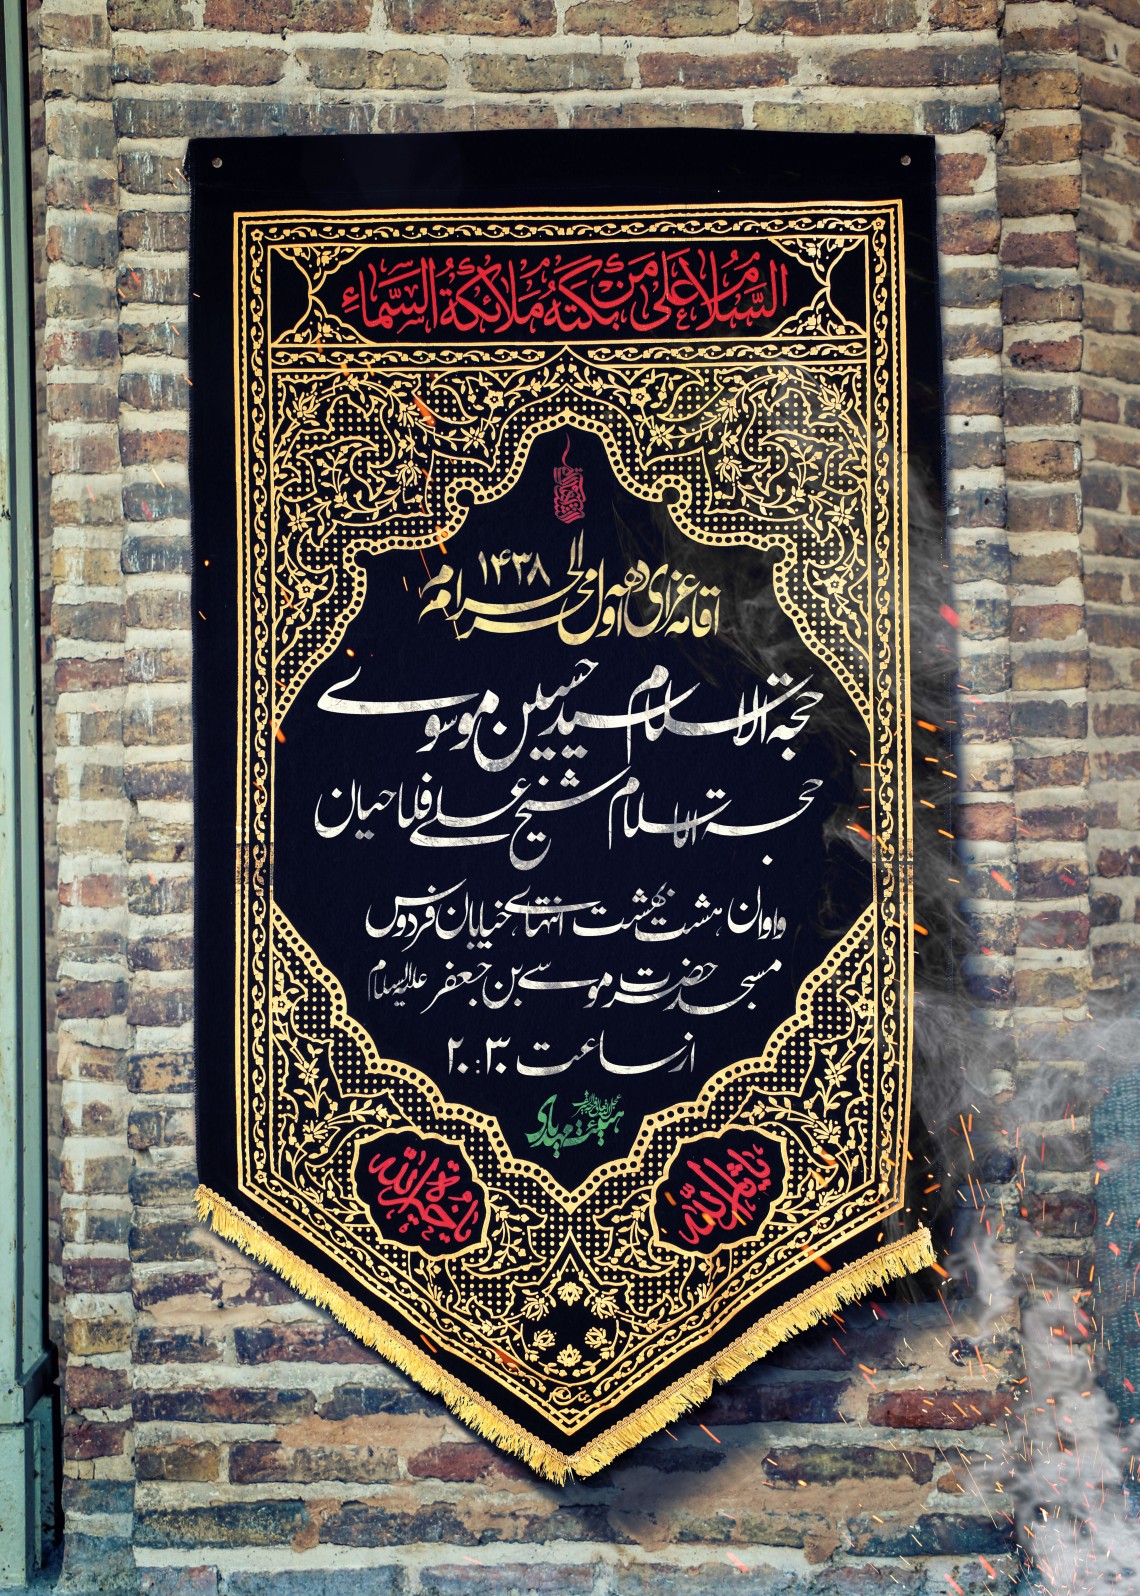 السَّلامُ عَلى مَن بَكَتهُ مَلائكةُ السَّماءِ
اقامه عزای دهه اول محرم الحرام ۱۴۳۸
حجة الاسلام سید حسین موسوی
حجة الاسلام شیخ علی فلاحیان
واوان هشت بهشت انتهای خیابان فردوس
مسجد حضرت موسی بن جعفر علیه السلام
از ساعت ۲۰:۳۰
هیئت مهدیای
یا ثارالله
یا خیرة الله